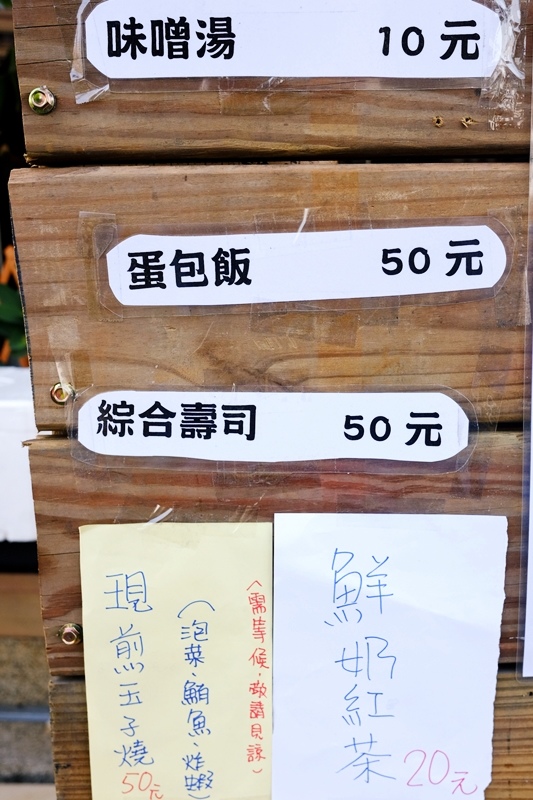 味噌湯 10元
蛋包飯 50元
綜合壽司 50元
(需等候,敬請見諒)
(泡菜、鮪魚、炸蝦)
現煎玉子燒
50元
鮮奶紅茶
20元